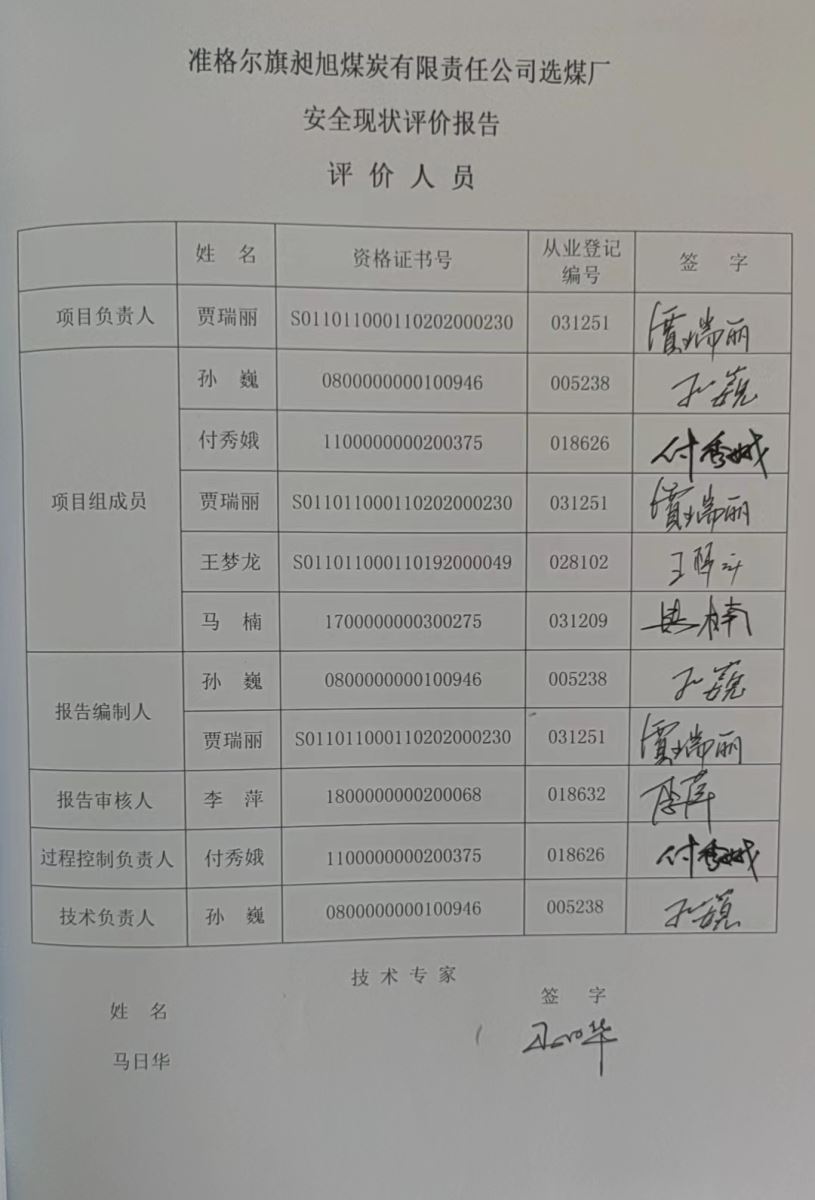 准格尔旗昶旭煤炭有限责任公司选煤厂
安全现状评价报告
评 价 人 员
姓 名 资格证书号 从业登记编号 签 字
项目负责人 贾瑞丽 S011011000110202000230 031251 贾瑞丽
项目组成员 孙 巍 0800000000100946 005238 孙巍
付秀娥 1100000000200375 018626 付秀娥
贾瑞丽 S011011000110202000230 031251 贾瑞丽
王梦龙 S011011000110192000049 028102 王梦龙
马 楠 1700000000300275 031209 马楠
报告编制人 孙 巍 0800000000100946 005238 孙巍
贾瑞丽 S011011000110202000230 031251 贾瑞丽
报告审核人 李 萍 1800000000200068 018632 李萍
过程控制负责人 付秀娥 1100000000200375 018626 付秀娥
技术负责人 孙 巍 0800000000100946 005238 孙巍
技 术 专 家
姓 名 签 字
马日华 马日华